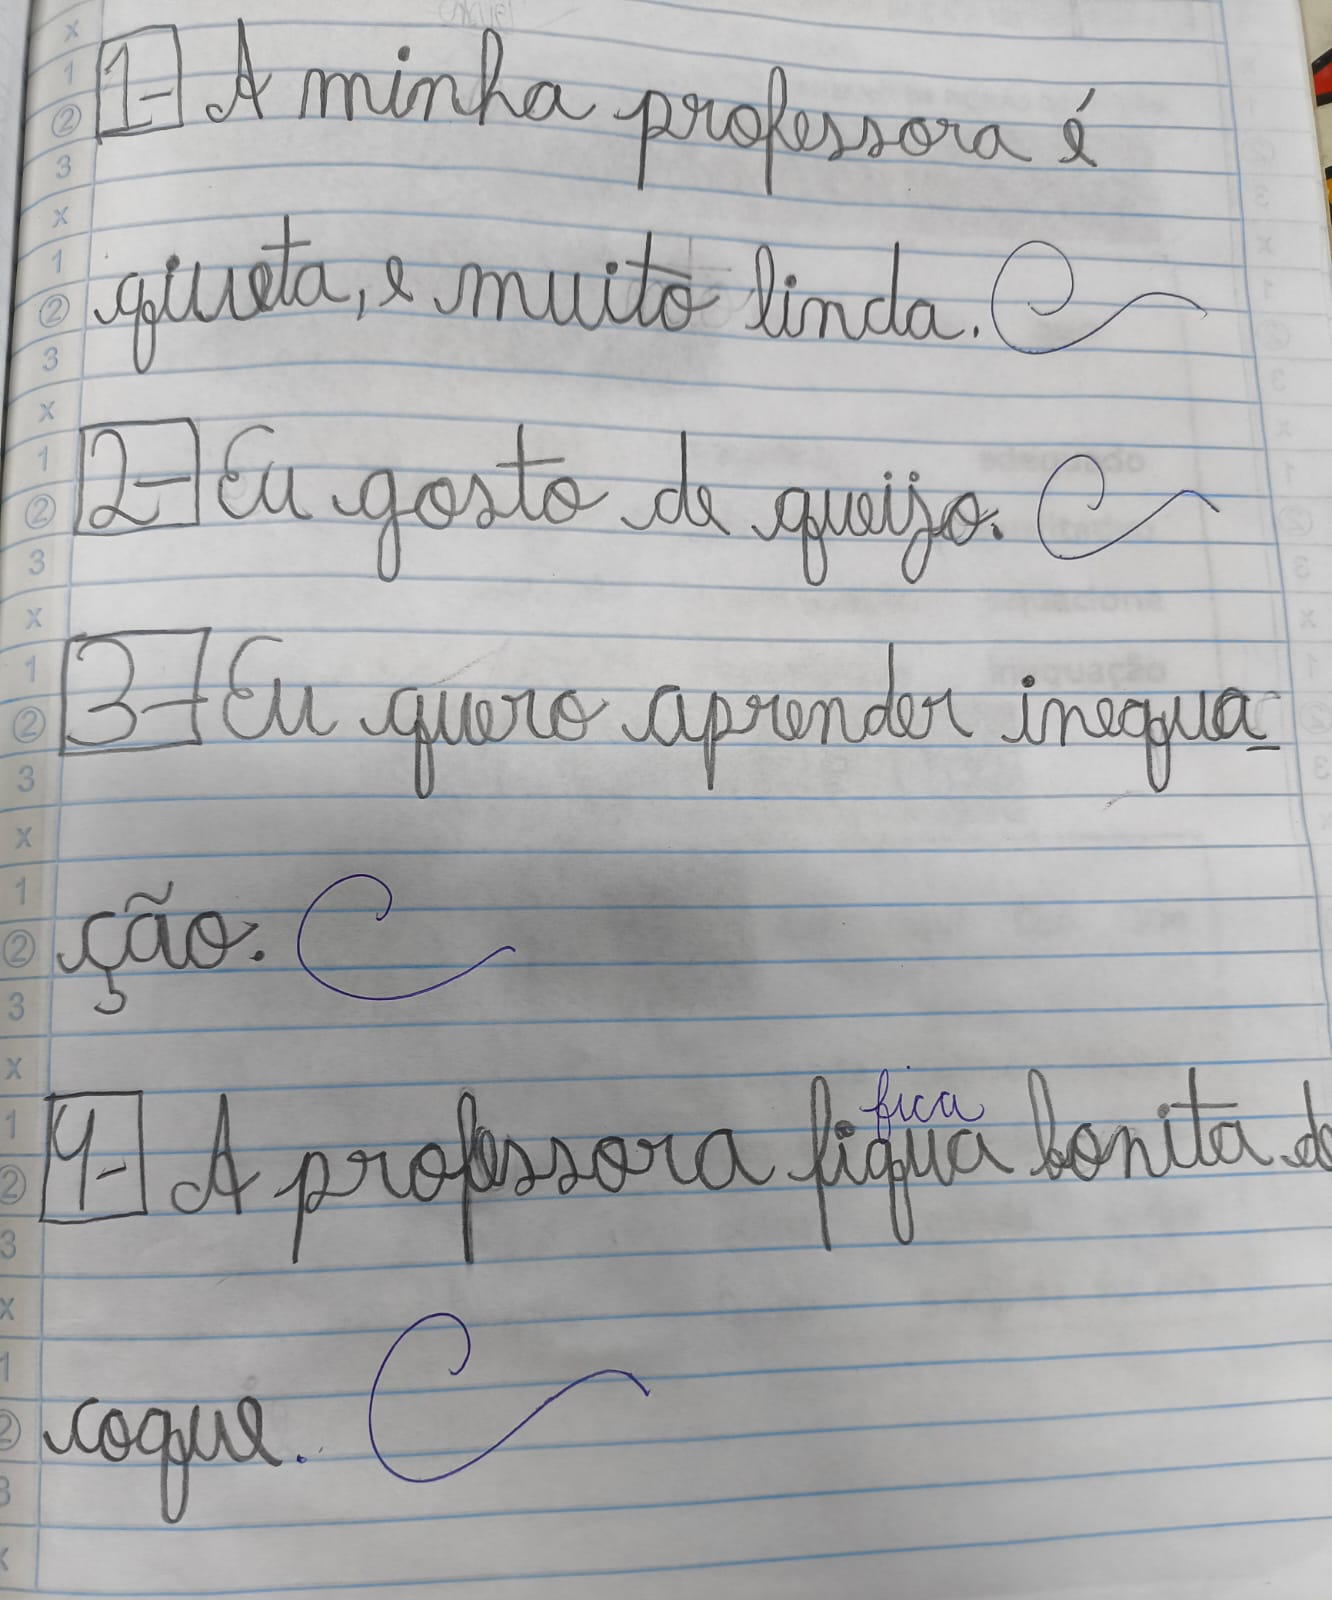 1- A minha professora é
qiueta, e muito linda. C
2- Eu gosto de queijo. C
3- Eu quero aprender inequa-
ção. C
fica
4- A professora fiqua bonita de
coque. C